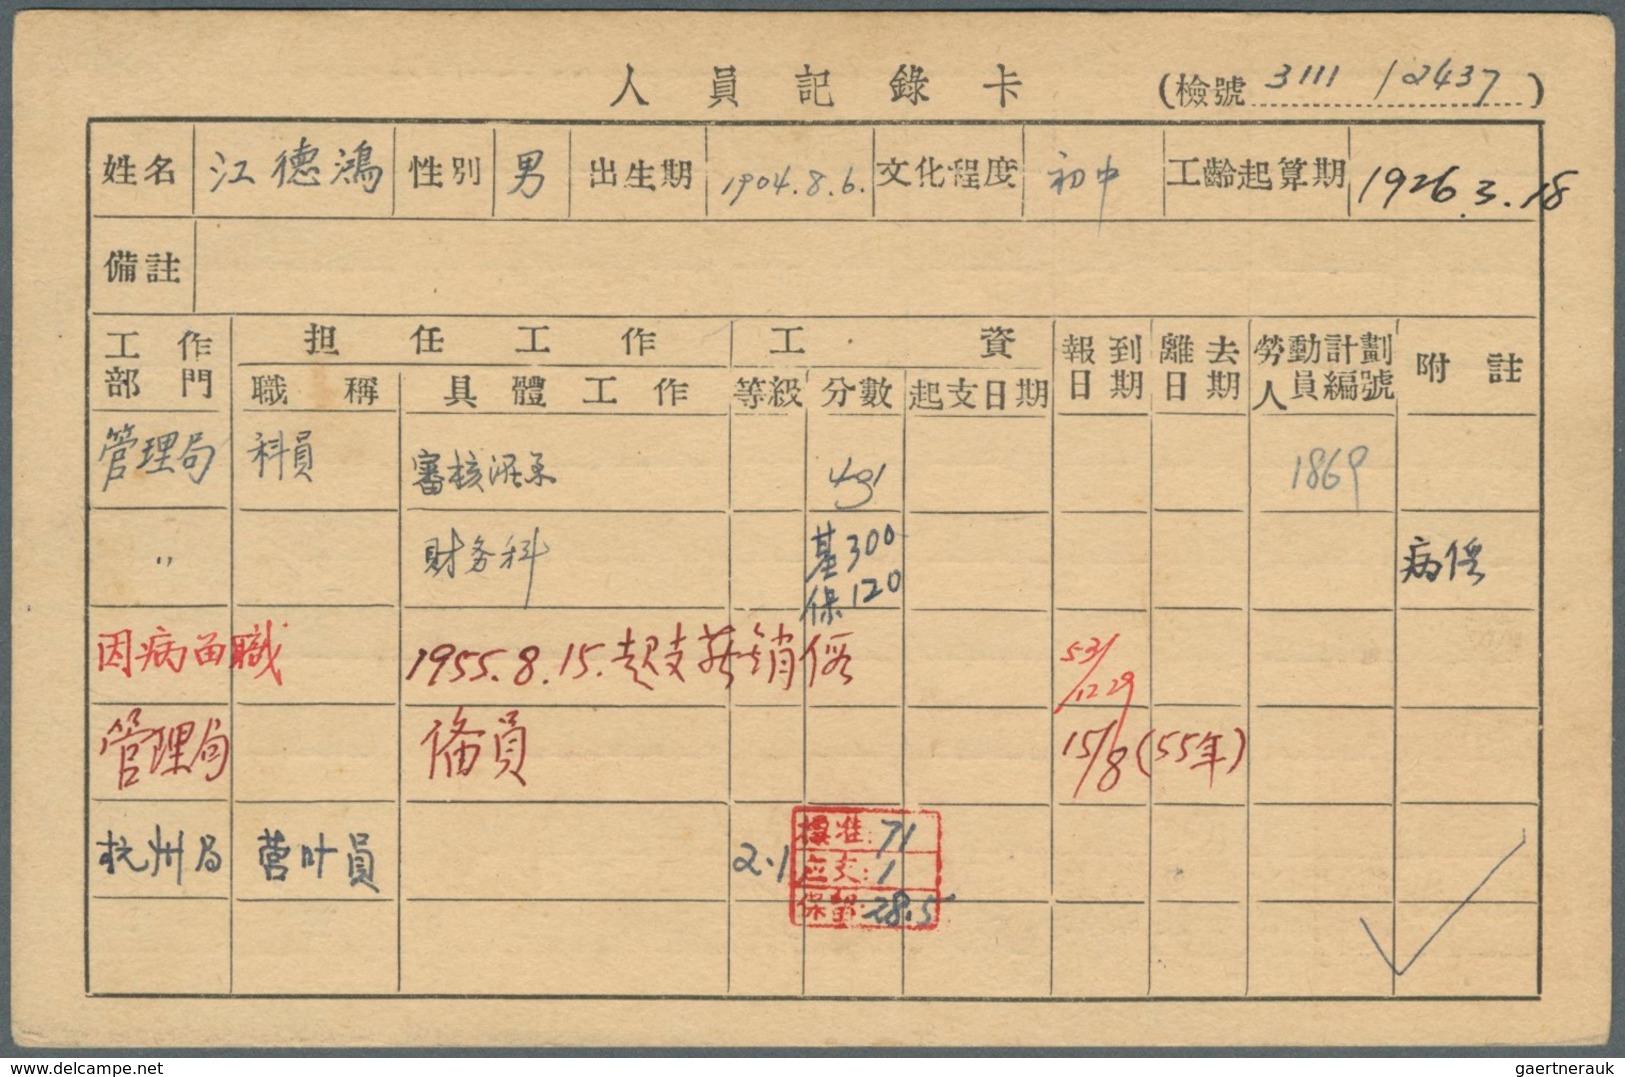 人員記錄卡 (檢號 3111 / 2437)
姓名 江德鴻 性別 男 出生期 1904.8.6. 文化程度 初中 工齡起算期 1926.3.18
備註
工作部門 担任工作 工資 報到日期 離去日期 勞動計劃人員編號 附註
職稱 具體工作 等級 分數 起支日期
管理局 科員 審核 491 1869
〃 財务科 基300 保120 病假
因病留職 1955.8.15.起支 銷假 53/12 29
管理局 備員 15/8 (55年)
杭州局 营叶員 2.1 標准: 71
应支: 1
保留: 28.5
gaertnerauk